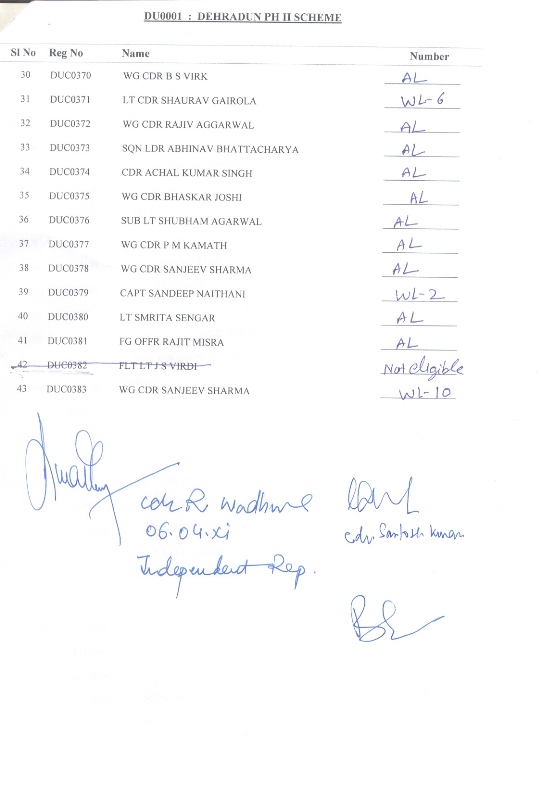 DU0001 : DEHRADUN PH II SCHEME
Sl No Reg No Name Number
30 DUC0370 WG CDR B S VIRK AL
31 DUC0371 LT CDR SHAURAV GAIROLA WL-6
32 DUC0372 WG CDR RAJIV AGGARWAL AL
33 DUC0373 SQN LDR ABHINAV BHATTACHARYA AL
34 DUC0374 CDR ACHAL KUMAR SINGH AL
35 DUC0375 WG CDR BHASKAR JOSHI AL
36 DUC0376 SUB LT SHUBHAM AGARWAL AL
37 DUC0377 WG CDR P M KAMATH AL
38 DUC0378 WG CDR SANJEEV SHARMA AL
39 DUC0379 CAPT SANDEEP NAITHANI WL-2
40 DUC0380 LT SMRITA SENGAR AL
41 DUC0381 FG OFFR RAJIT MISRA AL
42 DUC0382 FLT LT J S VIRDI Not eligible
43 DUC0383 WG CDR SANJEEV SHARMA WL-10
Cdr R Wadhwa
06.04.xi
Cdr. Santosh Kumar
Independent Rep.